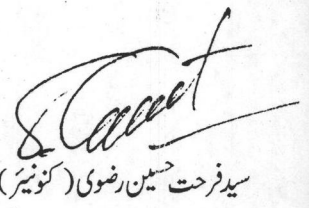 سید فرحت حسین رضوی (کنونیئر)